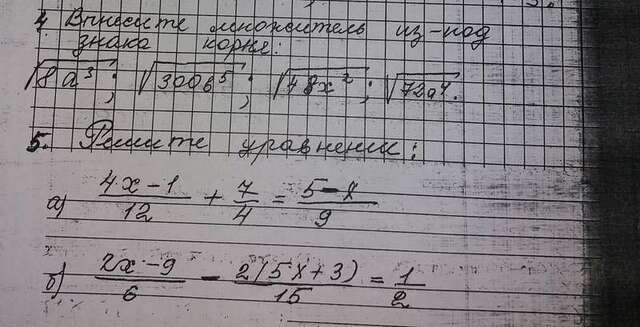 4. Вынесите множитель из-под
знака корня:
√8a³; √300b⁵; √48x²; √72a⁴.
5. Решите уравнения:
а) (4x-1)/12 + 7/4 = (5-x)/9
б) (2x-9)/6 - 2(5x+3)/15 = 1/2